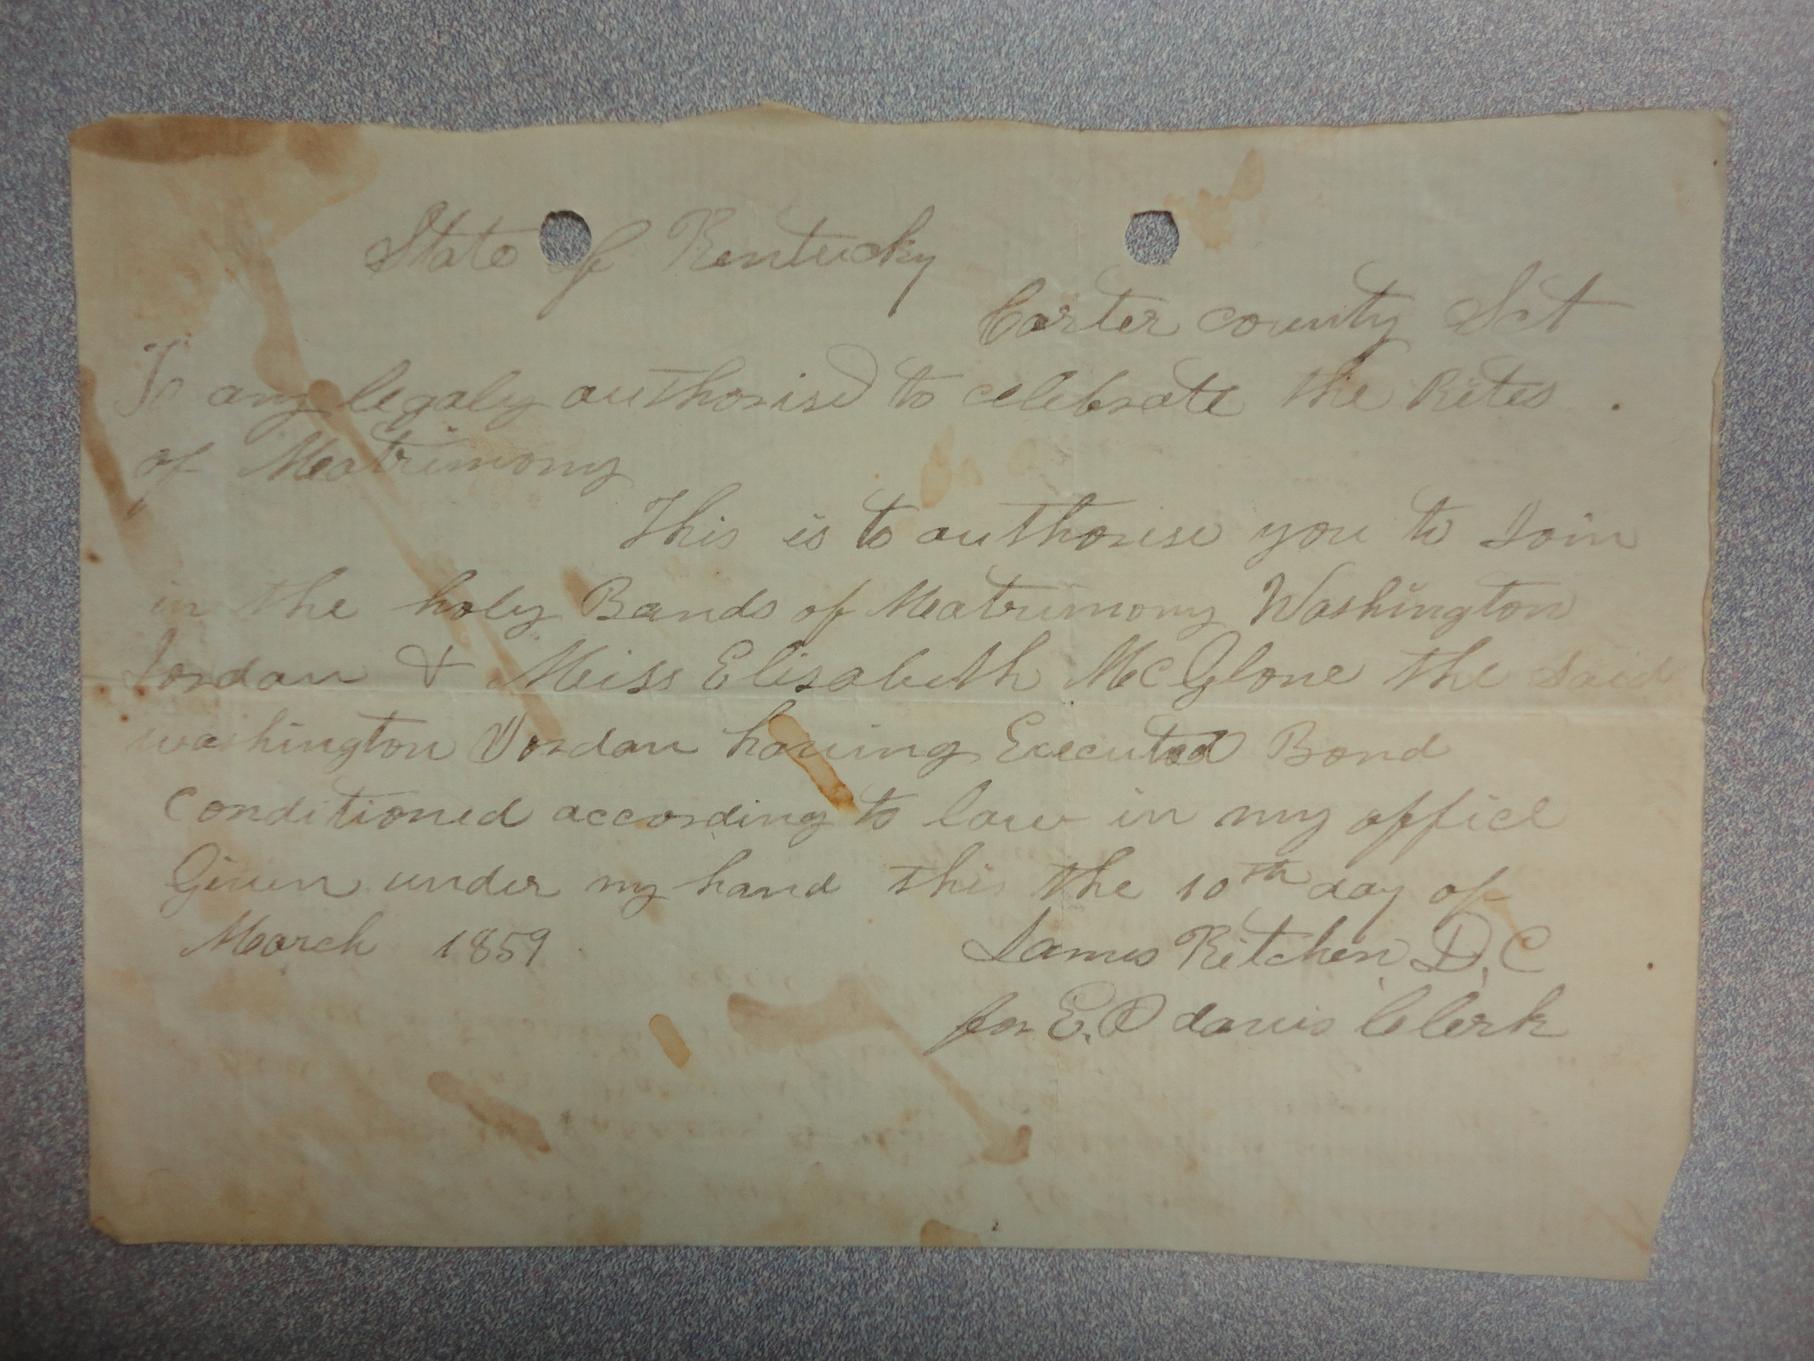 State of Kentucky
Carter county Sct
To any legaly authorised to celebrate the Rites
of Matrimony
This is to authorise you to Join
in the holy Bands of Matrimony Washington
Jordan & Miss Elisabeth McGlone the said
washington Jordan having Executed Bond
conditioned according to law in my office
Given under my hand this the 10th day of
March 1859
James Kitchen D,C
for E. D davis Clerk